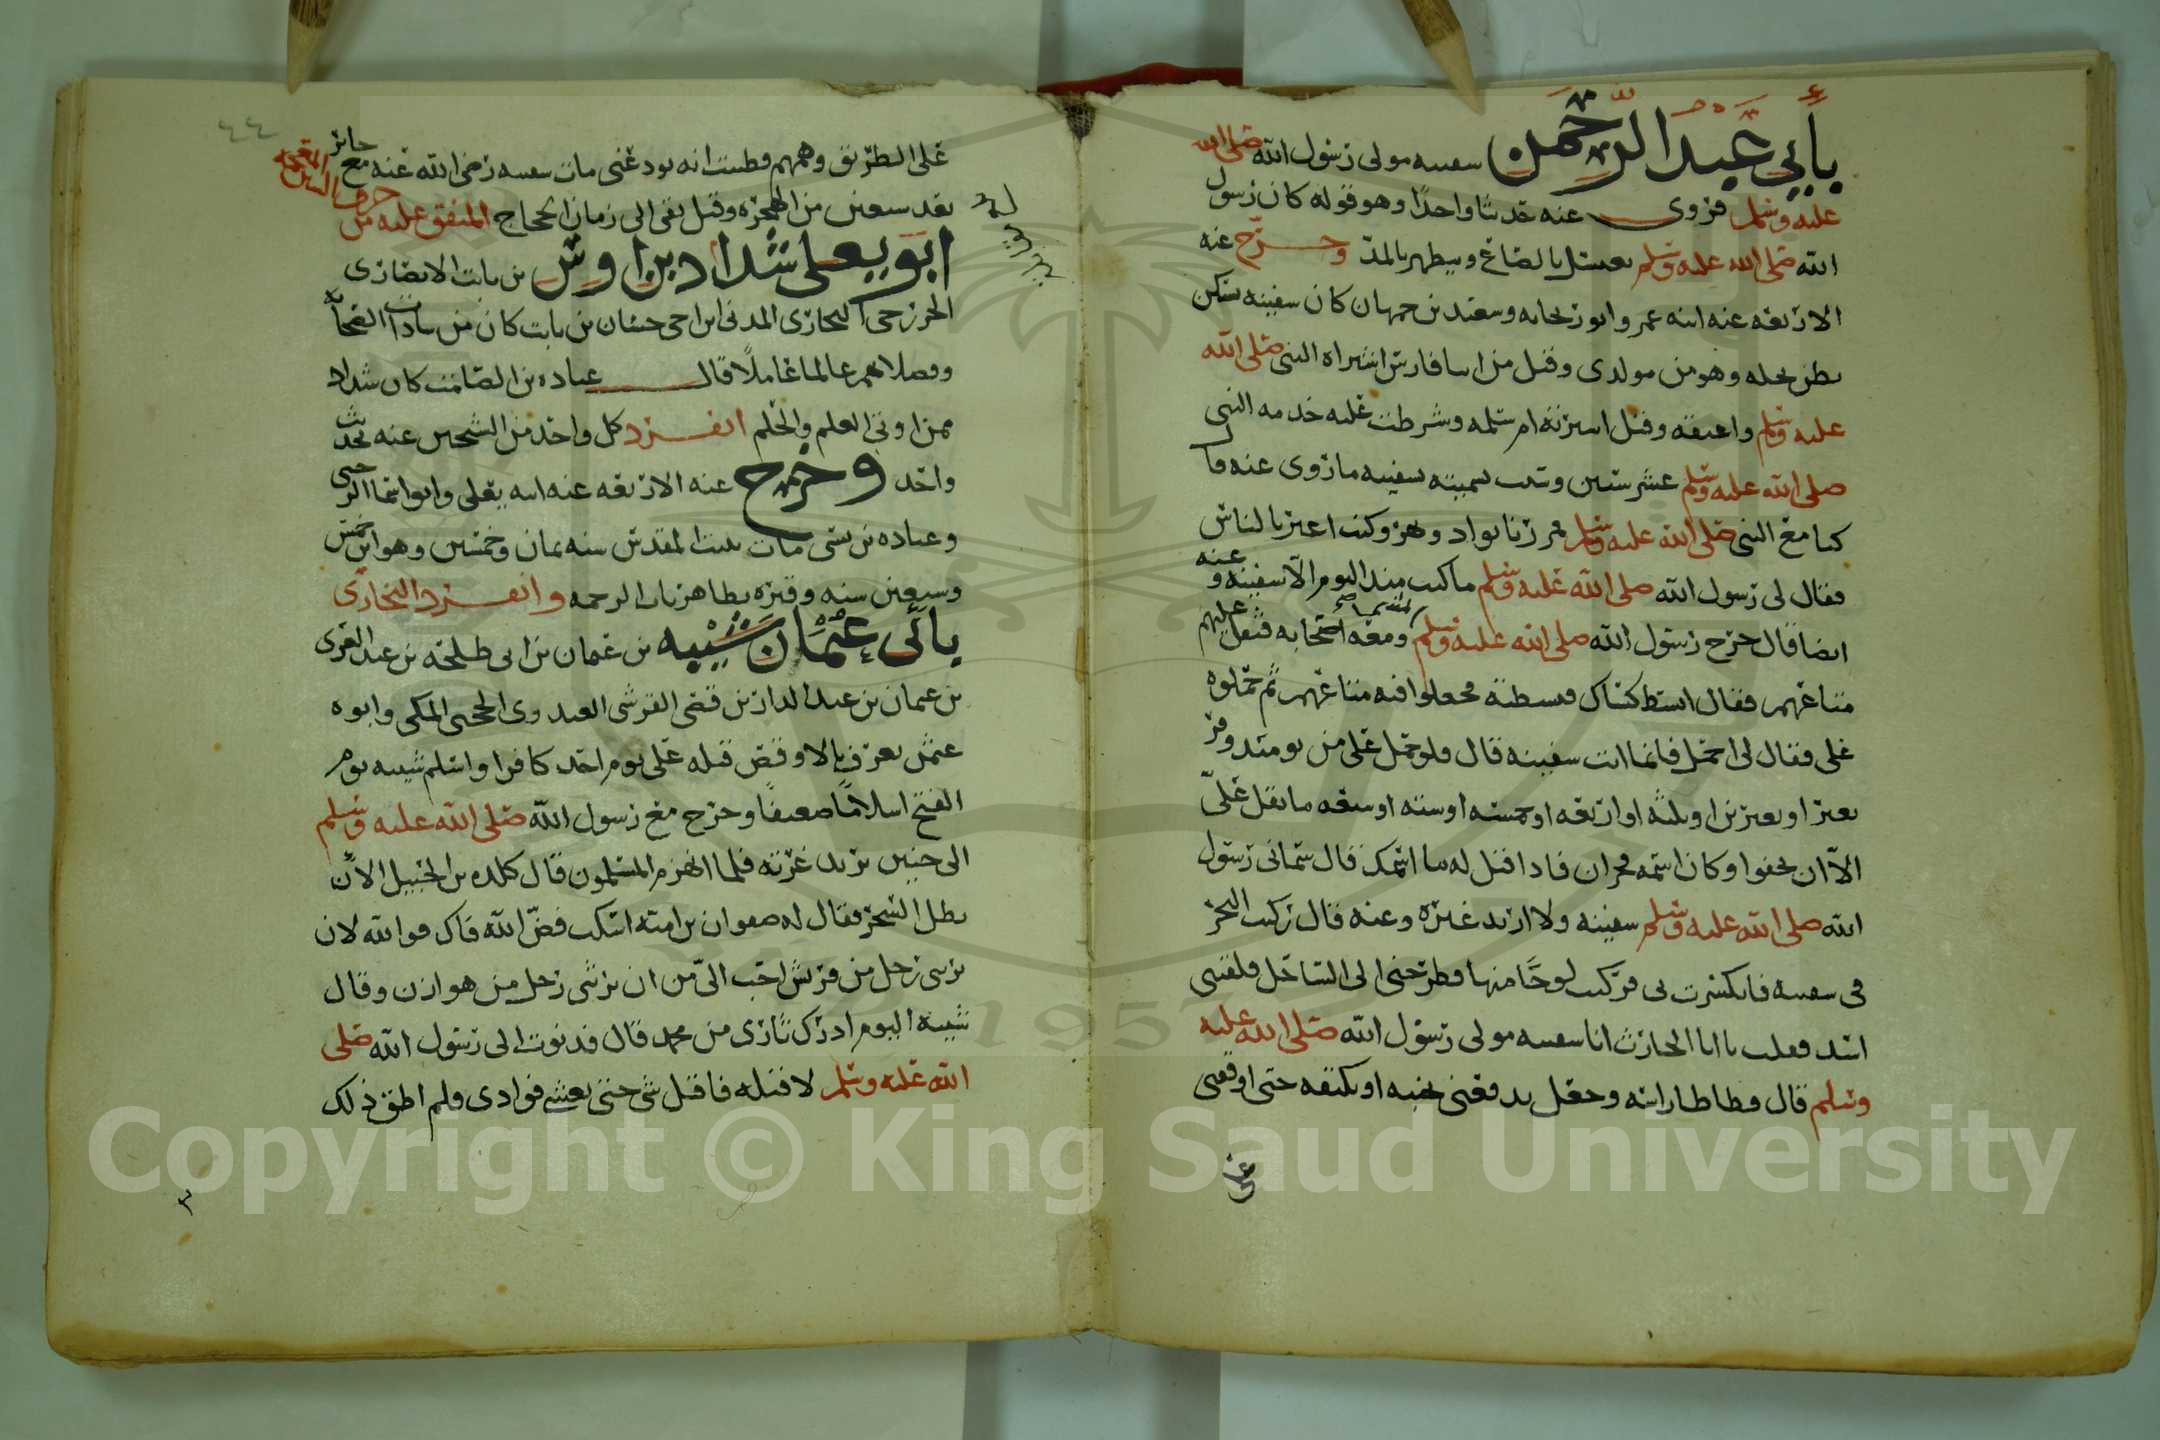 بأبي عبد الرحمن سفينه مولى رسول الله صلى الله
عليه وسلم فروى عنه حديثا واحدا وهو قوله كان رسول
الله صلى الله عليه وسلم يغتسل بالصاع ويتطهر بالمد وخرج عنه
الاربعه عنه ابنه عمر وابو ريحانه وسعيد بن جمهان كان سفينه يسكن
بطن نخله وهو من مولدى وقيل من ابنا فارس اشتراه النبى صلى الله
عليه وسلم واعتقه وقيل اشترته ام سلمه وشرطت عليه خدمه النبى
صلى الله عليه وسلم عشر سنين وسبب تسميته سفينه ما روى عنه قال
كنا مع النبى صلى الله عليه وسلم فمررنا بواد ونهر وكنت اعبر بالناس
فقال لى رسول الله صلى الله عليه وسلم ما كنت منذ اليوم الا سفينه وعنه
ايضا قال خرج رسول الله صلى الله عليه وسلم ومعه اصحابه فثقل عليهم
متاعهم فقال ابسط كساك فبسطته فجعلوا فيه متاعهم ثم حملوه
على فقال لى احمل فانما انت سفينه قال فلو حمل على من يومئذ وقر
بعير او بعيرين او ثلثه او اربعه او خمسه او سته او سبعه ما ثقل علىّ
الا ان يحفوا وكان اسمه مهران فاذا قيل له ما اسمك قال سمانى رسول
الله صلى الله عليه وسلم سفينه ولا اريد غيره وعنه قال ركبت البحر
فى سفينه فانكسرت بى فركبت لوحا منها فطرحنى الى الساحل فلقينى
اسد فقلت يا ابا الحارث انا سفينه مولى رسول الله صلى الله عليه
وسلم قال فطاطا راسه وجعل يدفعنى بجنبه او بكتفه حتى اوقفنى
على
٤٤
على الطريق وهمهم فظننت انه يودعنى مات سفينه رضى الله عنه مع جابر
بعد سبعين من الهجره وقيل بقى الى زمان الحجاج المتفق عليه من
حرف الشين المعجمه
ابو يعلى شداد بن اوس بن ثابت الانصارى
الخزرجى النجارى المدنى ابن اخى حسان بن ثابت كان من سادات الصحابه
وفضلائهم عالما عاملا قال عباده بن الصامت كان شداد
ممن اوتى العلم والحلم انفرد كل واحد من الشيخين عنه بحديث
واحد وخرج عنه الاربعه عنه ابنه يعلى وابو اسما الرحبى
وعباده بن نسى مات ببيت المقدس سنه ثمان وخمسين وهو ابن خمس
وسبعين سنه وقبره بظاهر باب الرحمه وانفرد البخارى
بأبي عثمان شيبه بن عثمان بن ابى طلحه بن عبد العزى
بن عثمان بن عبد الدار بن قصى القرشى العبدرى الحجبى المكى وابوه
عثمن يعرف بالاوقص قتله على يوم احد كافرا واسلم شيبه يوم
الفتح اسلاما ضعيفا وخرج مع رسول الله صلى الله عليه وسلم
الى حنين يريد غرته فلما انهزم المسلمون قال كلده بن الحنبل الآن
بطل السحر فقال له صفوان بن اميه اسكت فضّ الله فاك فوالله لان
يربنى رجل من قريش احب الىّ من ان يربنى رجل من هوازن وقال
شيبه اليوم ادرك ثارى من محمد قال فدنوت الى رسول الله صلى
الله عليه وسلم لاقتله فاقبل شى حتى تغشى فوادى فلم اطق ذلك
Copyright © King Saud University
1957